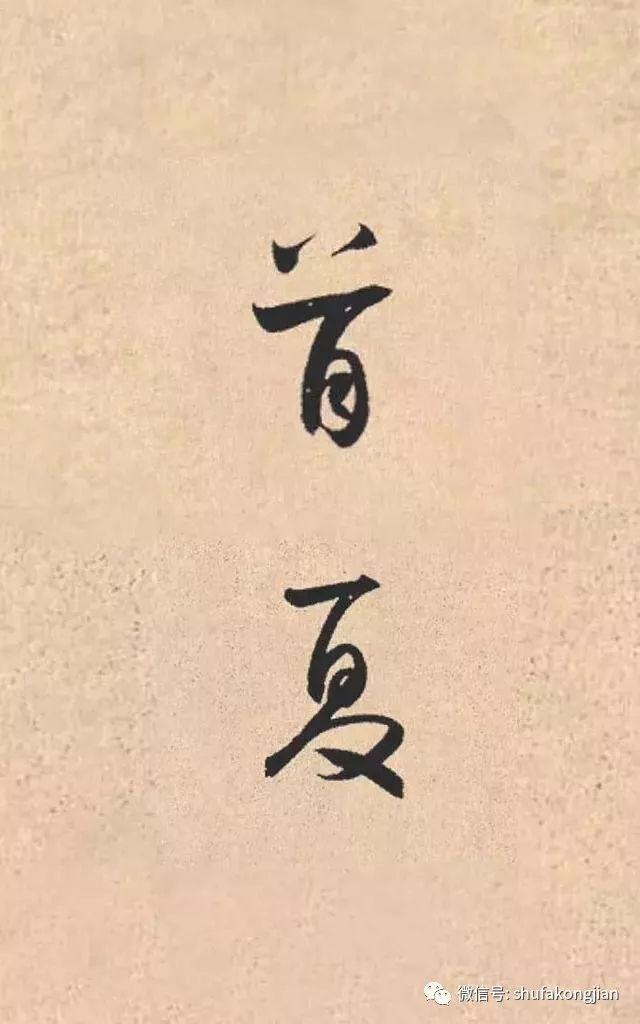 首
夏
微信号: shufakongjian